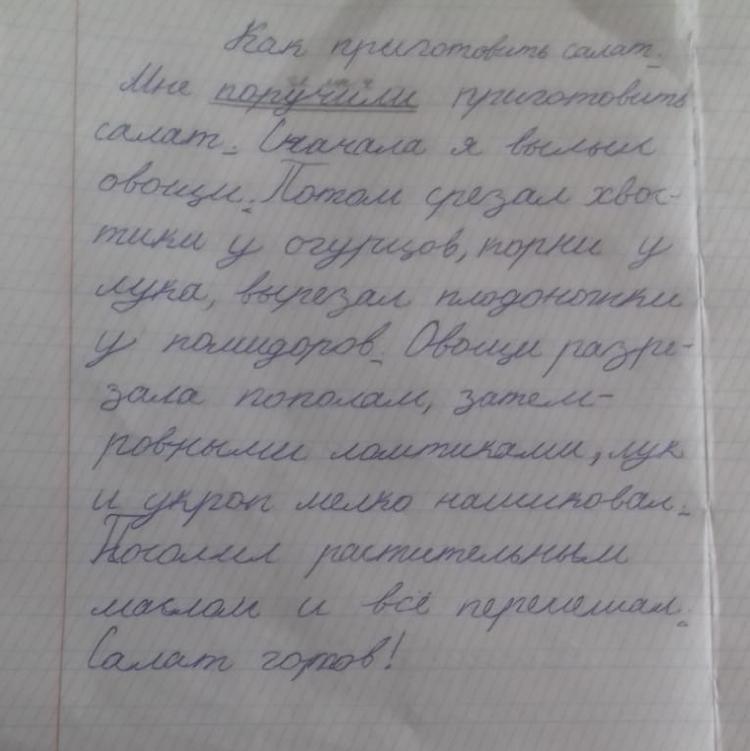 Как приготовить салат.
Мне поручили приготовить
салат. Сначала я вымыл
овощи. Потом срезал хвос-
тики у огурцов, корни у
лука, вырезал плодоножки
у помидоров. Овощи разре-
зала пополам, затем-
ровными ломтиками, лук
и укроп мелко нашинковал.
Посолил растительным
маслом и всё перемешал.
Салат готов!